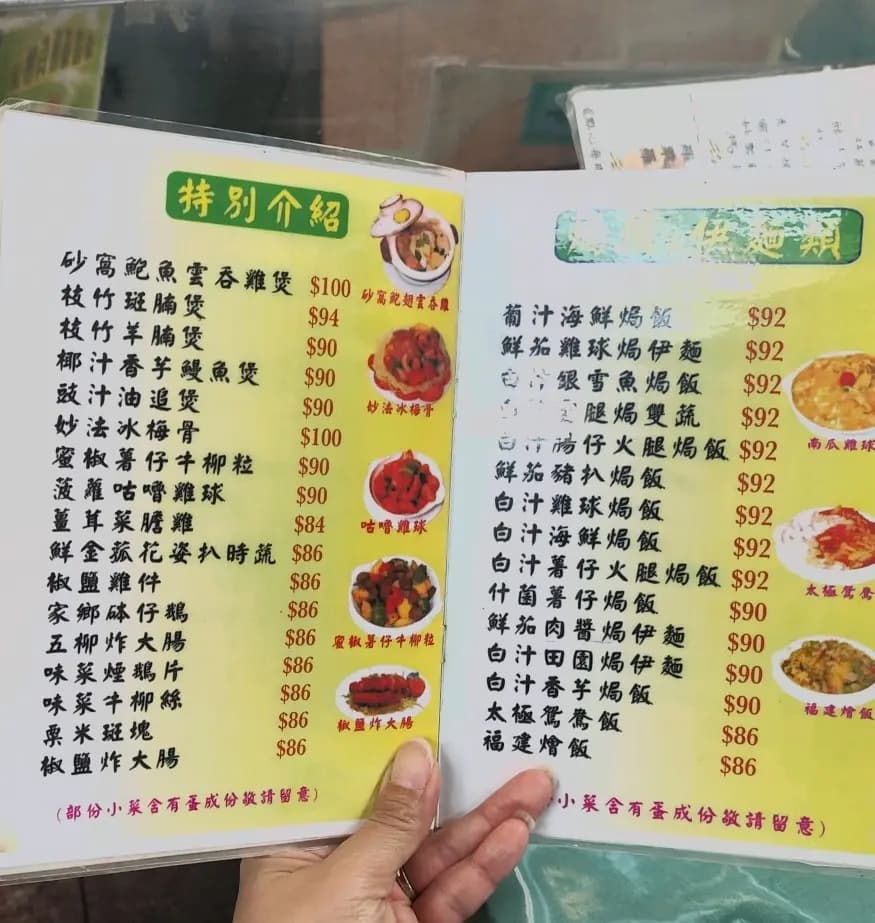 特別介紹
砂窩鮑魚雲吞雞煲 $100
枝竹斑腩煲 $94
枝竹羊腩煲 $90
椰汁香芋鰻魚煲 $90
豉汁油追煲 $90
妙法冰梅骨 $100
蜜椒薯仔牛柳粒 $90
菠蘿咕嚕雞球 $90
薑茸菜膽雞 $84
鮮金菰花姿扒時蔬 $86
椒鹽雞件 $86
家鄉砵仔鵝 $86
五柳炸大腸 $86
味菜煙鵝片 $86
味菜牛柳絲 $86
粟米斑塊 $86
椒鹽炸大腸 $86
(部份小菜含有蛋成份敬請留意)
砂窩鮑翅雲吞雞
妙法冰梅骨
咕嚕雞球
蜜椒薯仔牛柳粒
椒鹽炸大腸
伊麵類
葡汁海鮮焗飯 $92
鮮茄雞球焗伊麵 $92
白汁銀雪魚焗飯 $92
腿焗雙蔬 $92
白汁腸仔火腿焗飯 $92
鮮茄豬扒焗飯 $92
白汁雞球焗飯 $92
白汁海鮮焗飯 $92
白汁薯仔火腿焗飯 $92
什菌薯仔焗飯 $90
鮮茄肉醬焗伊麵 $90
白汁田園焗伊麵 $90
白汁香芋焗飯 $90
太極鴛鴦飯 $86
福建燴飯 $86
小菜含有蛋成份敬請留意)
南瓜雞球
太極鴛鴦
福建燴飯